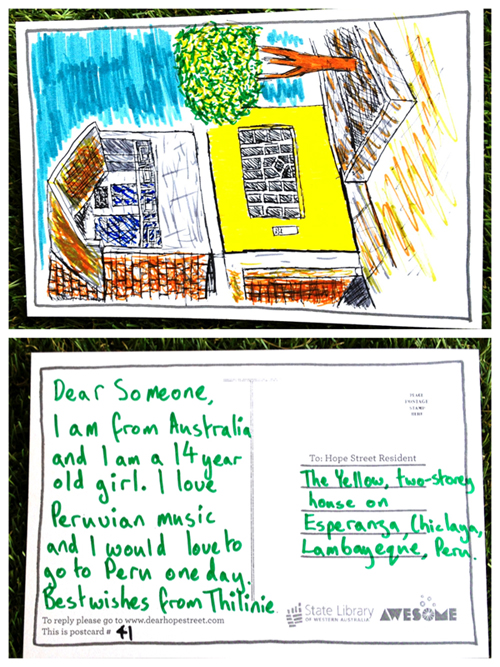 Dear Someone,
I am from Australia
and I am a 14 year
old girl. I love
Peruvian music
and I would love to
go to Peru one day.
Best wishes from Thilinie.
To reply please go to www.dearhopestreet.com
This is postcard # 41
PLACE
POSTAGE
STAMP
HERE
To: Hope Street Resident
The Yellow, two-storey
house on
Esperanza, Chiclayo,
Lambayeque, Peru.
State Library
OF WESTERN AUSTRALIA
AWESOME